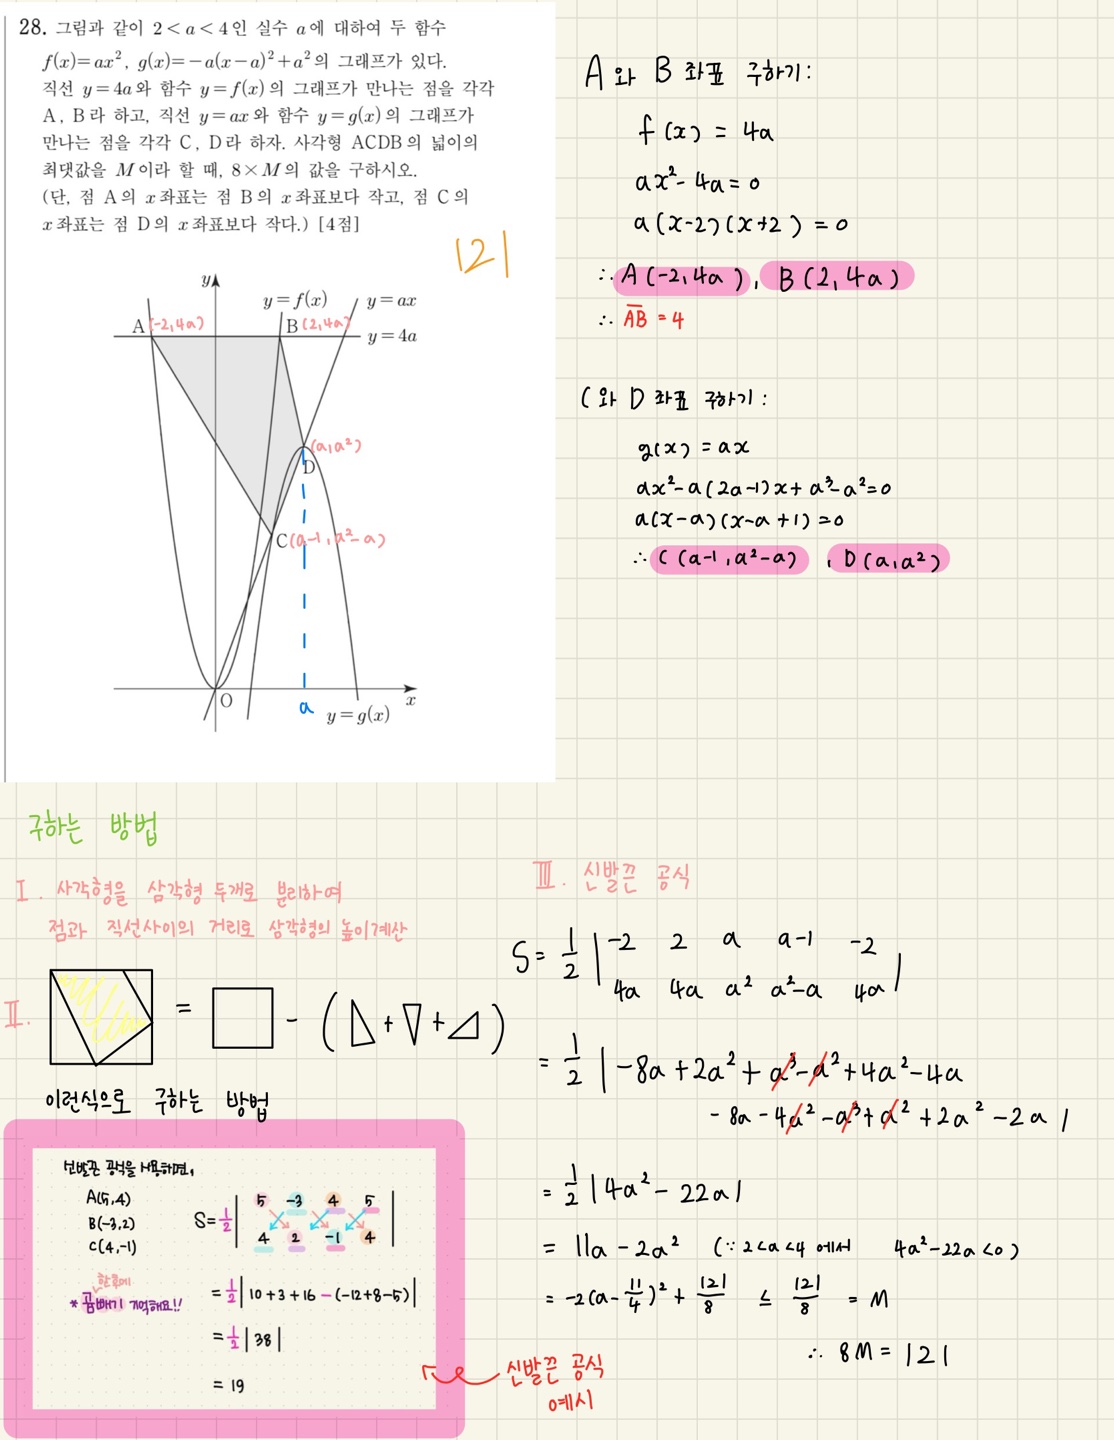 28. 그림과 같이 2 < a < 4인 실수 a에 대하여 두 함수
f(x)=ax², g(x)=-a(x-a)²+a²의 그래프가 있다.
직선 y=4a와 함수 y=f(x)의 그래프가 만나는 점을 각각
A, B라 하고, 직선 y=ax와 함수 y=g(x)의 그래프가
만나는 점을 각각 C, D라 하자. 사각형 ACDB의 넓이의
최댓값을 M이라 할 때, 8×M의 값을 구하시오.
(단, 점 A의 x좌표는 점 B의 x좌표보다 작고, 점 C의
x좌표는 점 D의 x좌표보다 작다.) [4점]
121
y
y=f(x)
y=ax
A(-2,4a)
B(2,4a)
y=4a
(a,a²)
D
C(a-1,a²-a)
O
a
x
y=g(x)
A와 B 좌표 구하기:
f(x) = 4a
ax²-4a=0
a(x-2)(x+2)=0
∴ A(-2,4a), B(2,4a)
∴ AB = 4
C와 D 좌표 구하기:
g(x) = ax
ax²-a(2a-1)x+a³-a²=0
a(x-a)(x-a+1)=0
∴ C(a-1,a²-a), D(a,a²)
구하는 방법
Ⅰ. 사각형을 삼각형 두개로 분리하여
점과 직선사이의 거리로 삼각형의 높이계산
Ⅱ.
= - ( + + )
이런식으로 구하는 방법
신발끈 공식을 사용하면,
A(5,4)
B(-3,2)
C(4,-1)
S=½| 5 -3 4 5 |
4 2 -1 4
한쿠에
*곱빼기 기억해요!!
=½|10+3+16-(-12+8-5)|
=½|38|
= 19
신발끈 공식
예시
Ⅲ. 신발끈 공식
S= ½ | -2 2 a a-1 -2
4a 4a a² a²-a 4a |
= ½ | -8a+2a²+a³-a²+4a²-4a
-8a-4a²-a³+a²+2a²-2a |
= ½ |4a²-22a|
= 11a-2a² (∵ 2<a<4 에서 4a²-22a<0)
= -2(a-11/4)²+121/8 ≤ 121/8 = M
∴ 8M = 121